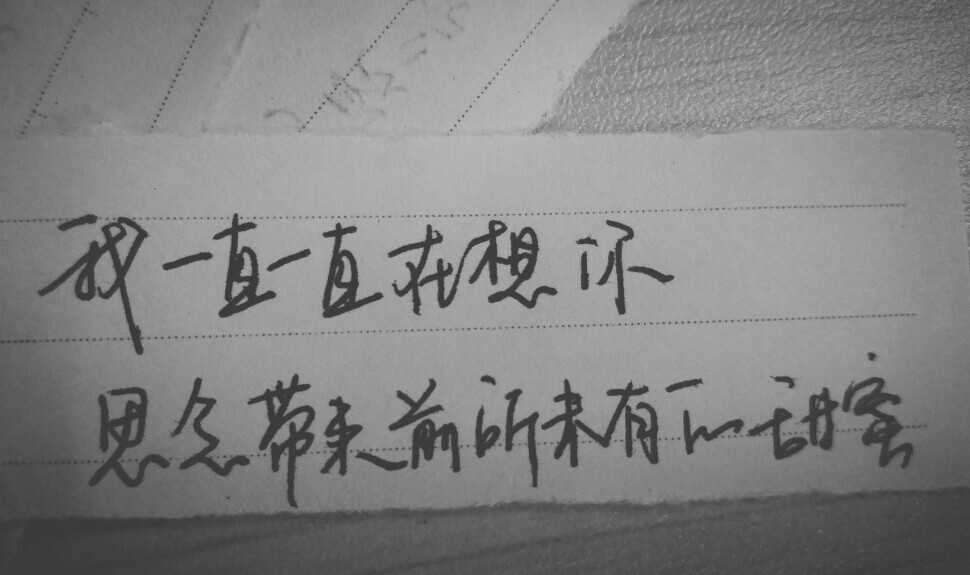 我一直一直在想你
思念带来前所未有的甜蜜